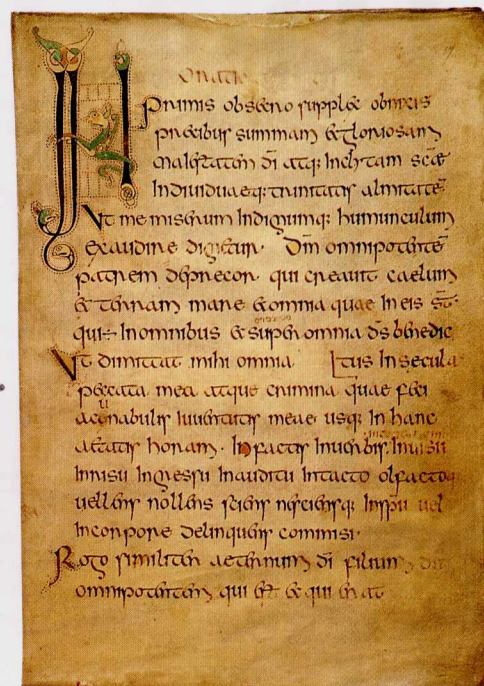 Oratio
INprimis obsecro supplex obnixis
praecibus summam & gloriosam
maiestatem di atq; inclytam sce
indiuiduaeq; trinitatis almitatē
Vt me miserum indignumq; humunculum
exaudire digetur. Dm omnipotentē
patrem deprecor. qui creauit caelum
& terram mare & omnia quae in eis st̄.
qui ÷ in omnibus & super omnia ds benedic
Vt dimittat mihi omnia [tus in secula
peccata mea atque crimina quae feci
a conabulis iuuentutis meae. usq; in hanc
aetatis horam. In factis in uerbis. in uisu
in risu in gressu in auditu in tacto olfactoq
uellens nollens sciens nesciensq; in spu uel
in corpore delinquens commisi.
Rogo similiter aeternum di filium dm
omnipotentem qui est & qui erat